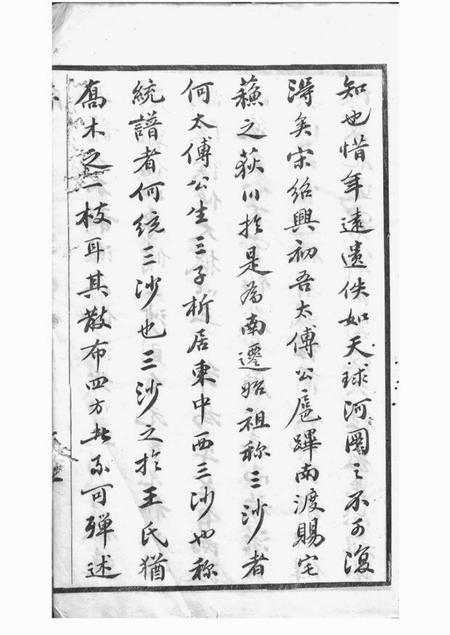 知也惜年遠遺佚如天球河圖之不可復
得矣宋紹興初吾太傅公扈蹕南渡賜宅
蘇之荻川於是為南遷始祖称三沙者
何太傅公生三子析居東中西三沙也称
統譜者何統三沙也三沙之於王氏猶
喬木之一枝耳其散布四方者不可殫述